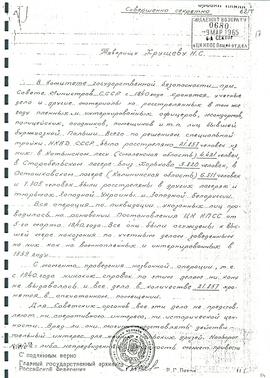 Совершенно секретно
ПОДЛЕЖИТ ВОЗВРАТУ
0680
-9 МАР 1965
Товарищу Хрущеву Н.С.
В Комитете государственной безопасности при
Совете Министров СССР с 1940 года хранятся учетные
дела и другие материалы на расстрелянных в том же
году пленных и интернированных офицеров, жандармов,
полицейских, осадников, помещиков и т.п. лиц бывшей
буржуазной Польши. Всего по решениям специальной
тройки НКВД СССР было расстреляно 21.857 человек,
из них: в Катынском лесу (Смоленская область) 4.421 человек,
в Старобельском лагере близ Харькова 3.820 человек, в
Осташковском лагере (Калининская область) 6.311 человек
и 7.305 человек были расстреляны в других лагерях и
тюрьмах Западной Украины и Западной Белоруссии.
Вся операция по ликвидации указанных лиц про-
водилась на основании Постановления ЦК КПСС от
5-го марта 1940 года. Все они были осуждены к выс-
шей мере наказания по учетным делам, заведенным
на них как на военнопленных и интернированных в
1939 году.
С момента проведения названной операции, т.е.
с 1940 года никаких справок по этим делам никому
не выдавалось и все дела в количестве 21.857 хра-
нятся в опечатанном помещении.
Для Советских органов все эти дела не представ-
ляют ни оперативного интереса, ни исторической цен-
ности. Вряд ли они могут представлять действи-
тельный интерес для наших польских друзей. Наоборот,
какая-либо непредвиденная
может привести
С подлинным верно
Главный государственный архивист
Российской Федерации